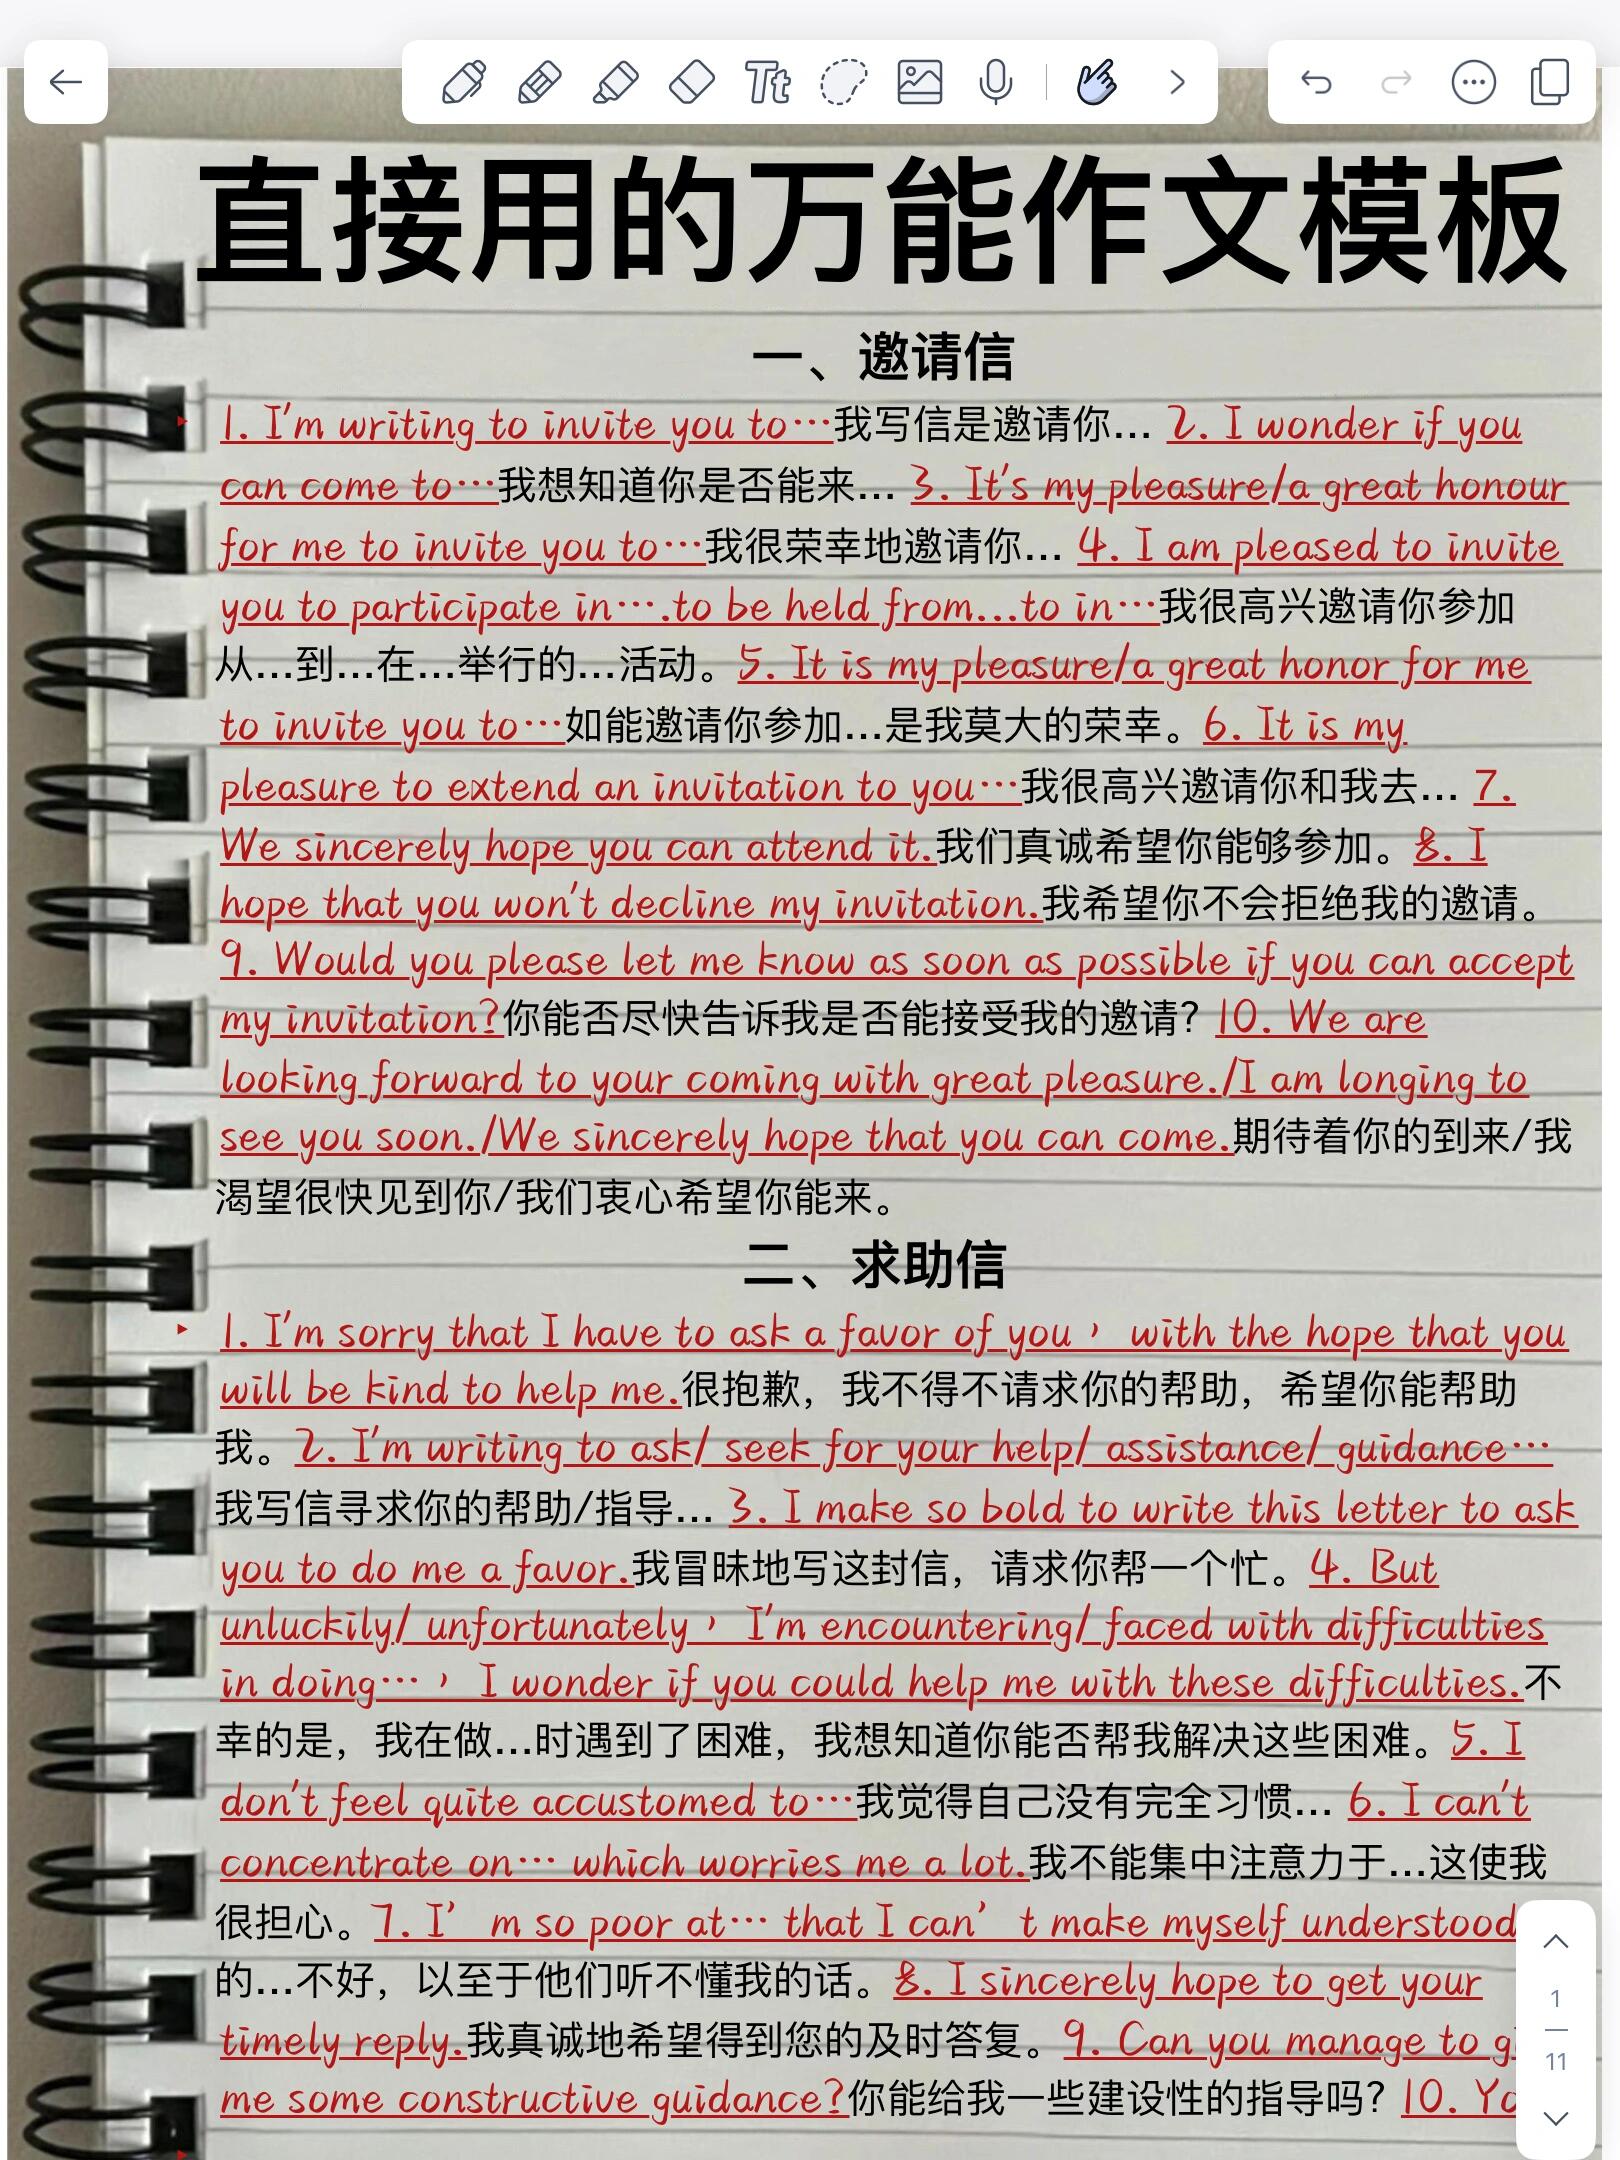 直接用的万能作文模板
一、邀请信
1. I'm writing to invite you to…我写信是邀请你… 2. I wonder if you
can come to…我想知道你是否能来… 3. It's my pleasure/a great honour
for me to invite you to…我很荣幸地邀请你… 4. I am pleased to invite
you to participate in….to be held from...to in…我很高兴邀请你参加
从…到…在…举行的…活动。5. It is my pleasure/a great honor for me
to invite you to…如能邀请你参加…是我莫大的荣幸。6. It is my
pleasure to extend an invitation to you…我很高兴邀请你和我去… 7.
We sincerely hope you can attend it.我们真诚希望你能够参加。8. I
hope that you won't decline my invitation.我希望你不会拒绝我的邀请。
9. Would you please let me know as soon as possible if you can accept
my invitation?你能否尽快告诉我是否能接受我的邀请? 10. We are
looking forward to your coming with great pleasure./I am longing to
see you soon./We sincerely hope that you can come.期待着你的到来/我
渴望很快见到你/我们衷心希望你能来。
二、求助信
1. I'm sorry that I have to ask a favor of you，with the hope that you
will be kind to help me.很抱歉，我不得不请求你的帮助，希望你能帮助
我。2. I'm writing to ask/ seek for your help/ assistance/ guidance…
我写信寻求你的帮助/指导… 3. I make so bold to write this letter to ask
you to do me a favor.我冒昧地写这封信，请求你帮一个忙。4. But
unluckily/ unfortunately，I'm encountering/ faced with difficulties
in doing…，I wonder if you could help me with these difficulties.不
幸的是，我在做…时遇到了困难，我想知道你能否帮我解决这些困难。5. I
don't feel quite accustomed to…我觉得自己没有完全习惯… 6. I can't
concentrate on… which worries me a lot.我不能集中注意力于…这使我
很担心。7. I’m so poor at… that I can’t make myself understood
的…不好，以至于他们听不懂我的话。8. I sincerely hope to get your
timely reply.我真诚地希望得到您的及时答复。9. Can you manage to
me some constructive guidance?你能给我一些建设性的指导吗? 10.
1
11